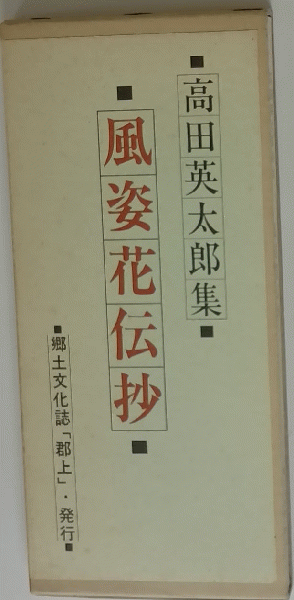 高田英太郎集
風姿花伝抄
郷土文化誌「郡上」・発行